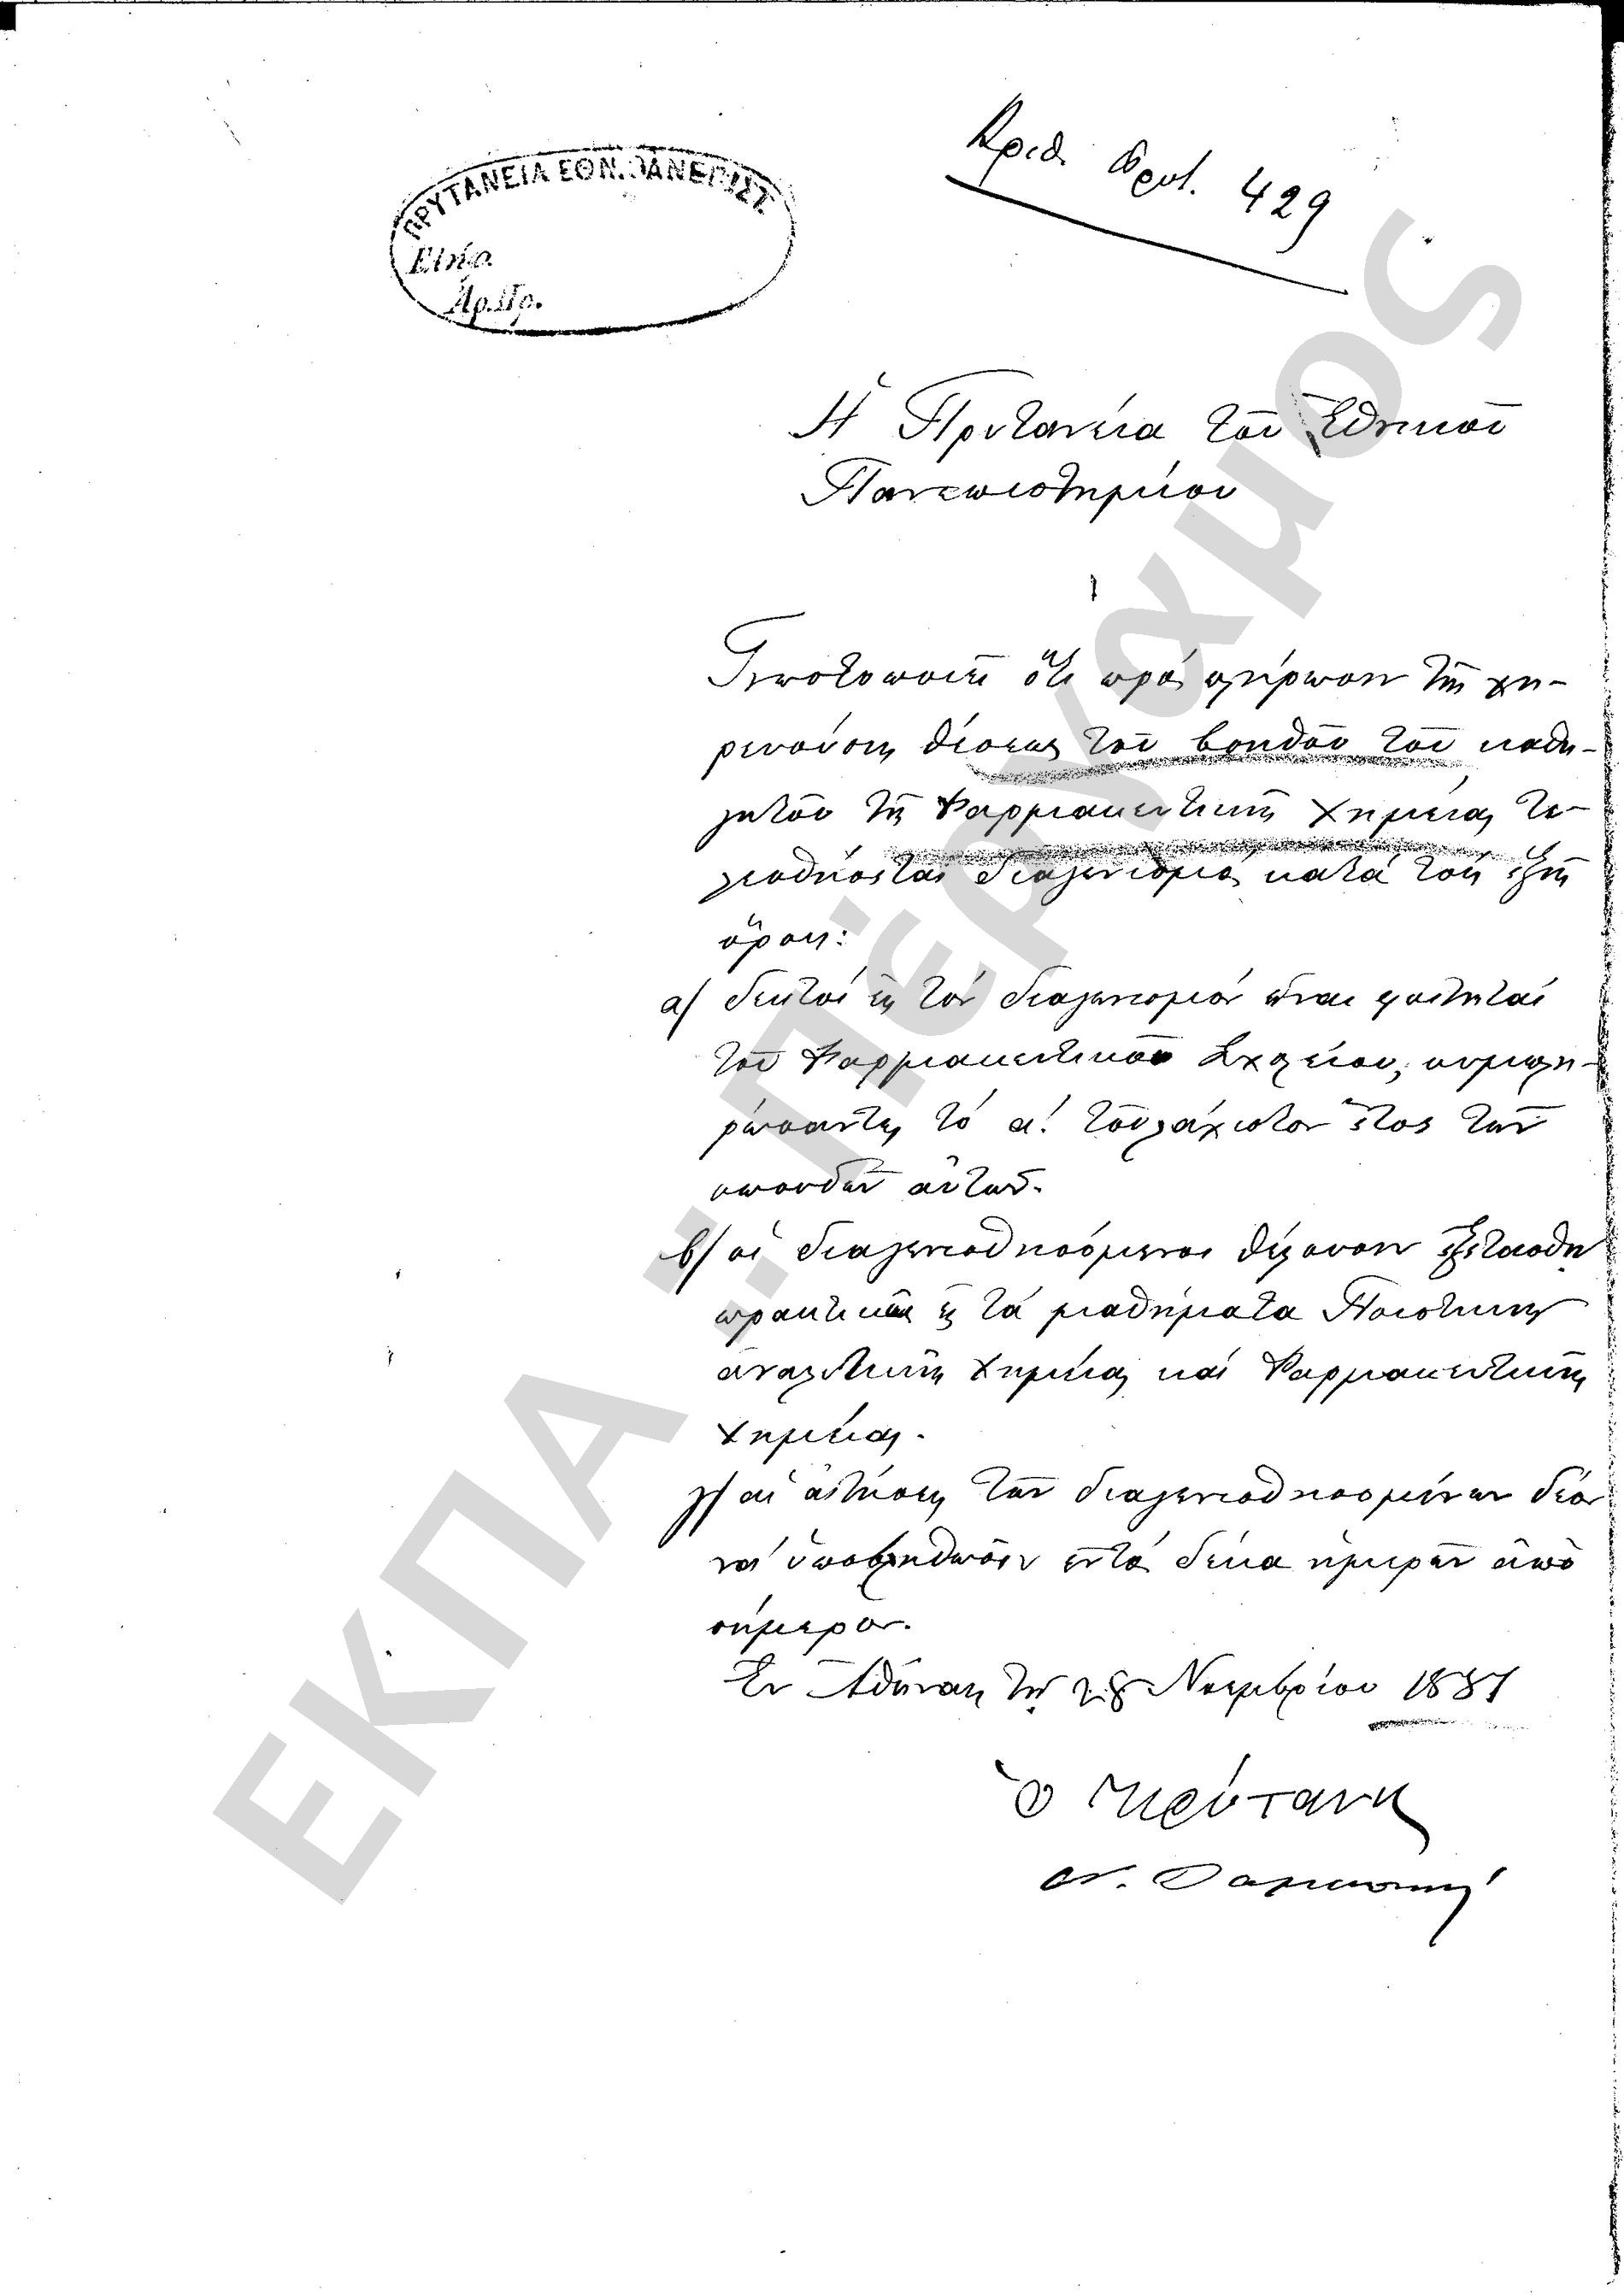 ΠΡΥΤΑΝΕΙΑ ΕΘΝ. ΠΑΝΕΠΙΣΤ.
Ἀρ. Πρ.
Ἀριθ. Πρωτ. 429
Ἡ Πρυτανεία τοῦ Ἐθνικοῦ
Πανεπιστημίου
Γνωστοποιεῖ ὅτι πρὸς πλήρωσιν τῆς χη-
ρευούσης θέσεως τοῦ βοηθοῦ τοῦ καθη-
γητοῦ τῆς Φαρμακευτικῆς Χημείας τε-
λεσθήσεται διαγωνισμός κατά τούς ἑξῆς
ὅρους:
α) δεκτοί εἰς τόν διαγωνισμόν εἶναι φοιτηταί
τοῦ Φαρμακευτικοῦ Σχολείου, συμπλη-
ρώσαντες τό α! τοὐλάχιστον ἔτος τῶν
σπουδῶν αὐτῶν.
β) οἱ διαγωνισθησόμενοι θέλουσιν ἐξετασθῆ
πρακτικῶς εἰς τά μαθήματα Ποιοτικῆς
ἀναλυτικῆς Χημείας καί Φαρμακευτικῆς
Χημείας.
γ) αἱ αἰτήσεις τῶν διαγωνισθησομένων δέον
νά ὑποβληθῶσιν ἐντός δέκα ἡμερῶν ἀπό
σήμερον.
Ἐν Ἀθήναις τῇ Νοεμβρίου 1887
Ὁ Πρύτανις
ΕΚΠΑ :: Πέργαμος